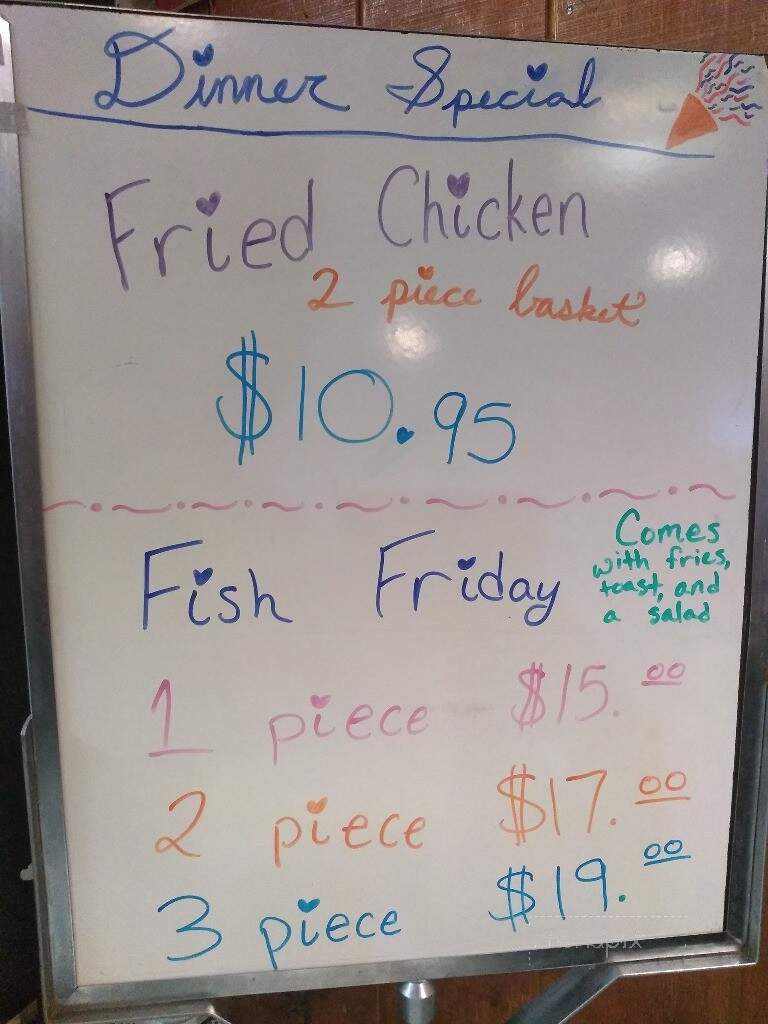 Dinner Special
Fried Chicken
2 piece basket
$10.95
Fish Friday
Comes
with fries,
toast, and
a salad
1 piece $15.00
2 piece $17.00
3 piece $19.00